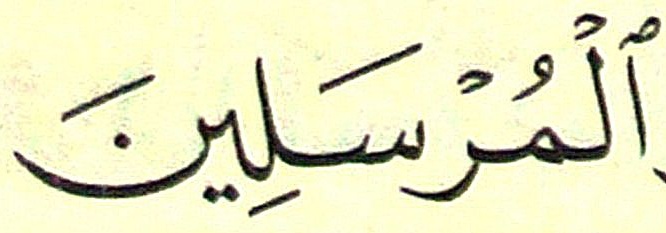 ٱلْمُرْسَلِينَ